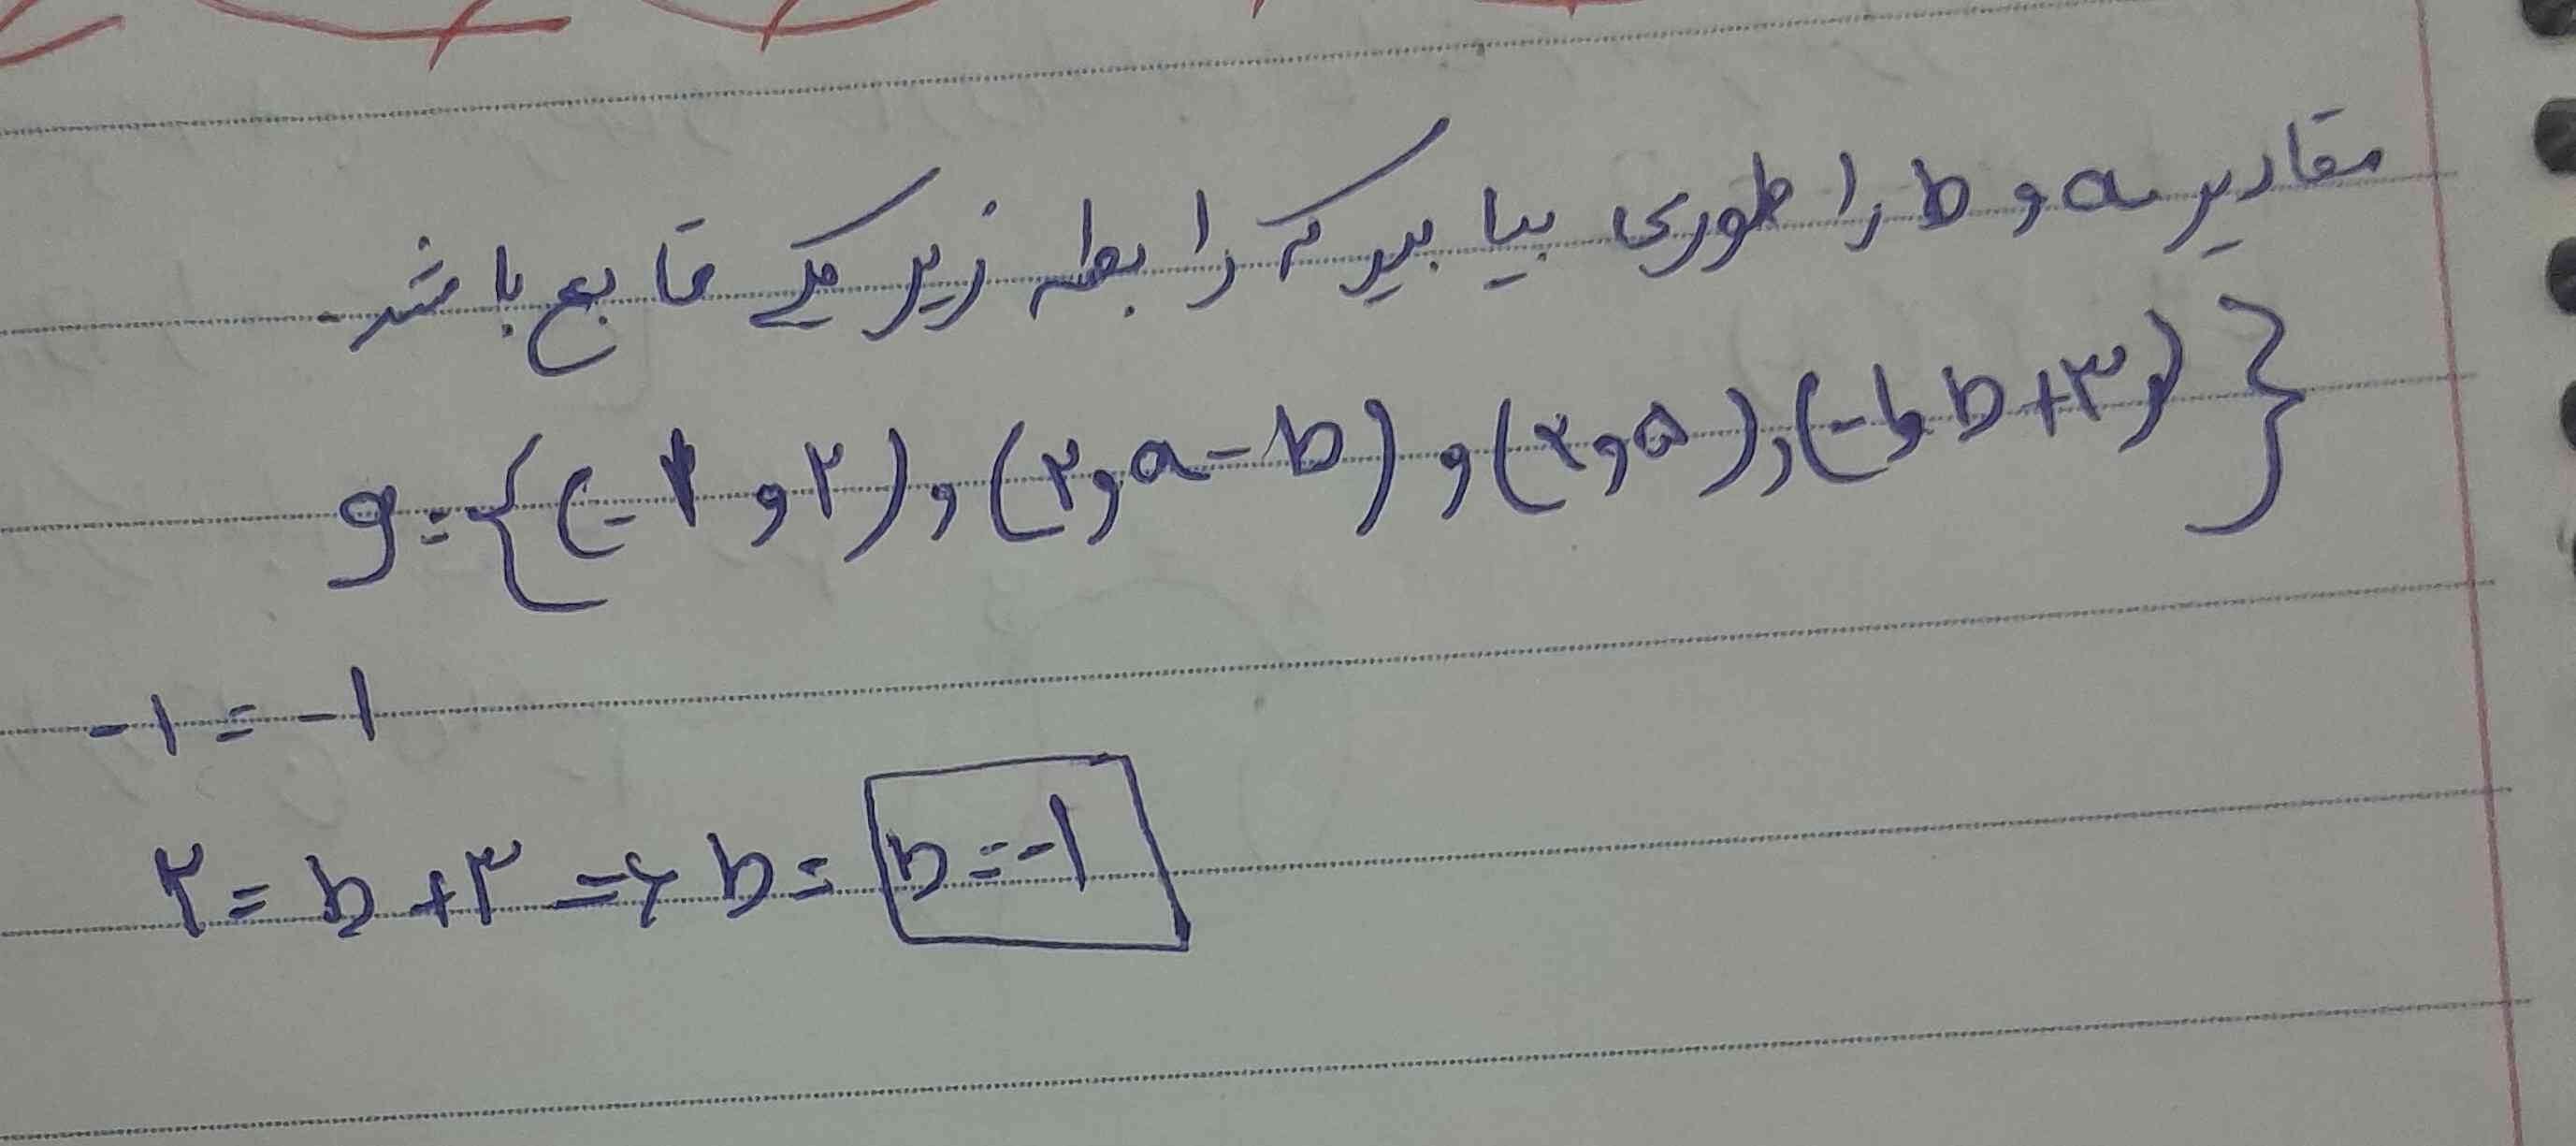 مقادیر a و b را طوری بیابیر که رابطه زیر یک تابع باشد.
g = {(-۱ و ۲) و (۲ و a-b) و (۲ و ۵) و (-۱ و b+۳)}
-۱ = -۱
۲ = b + ۳ => b = b = -۱